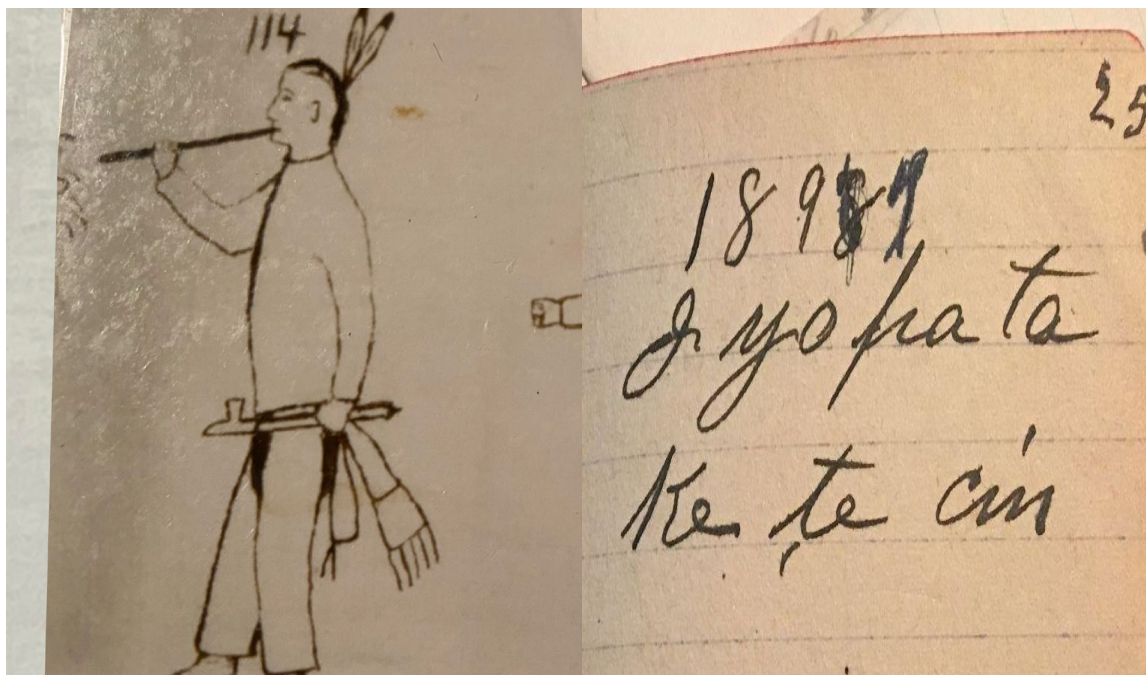 114
25
1897
Iyopata
Ke ṭe cin